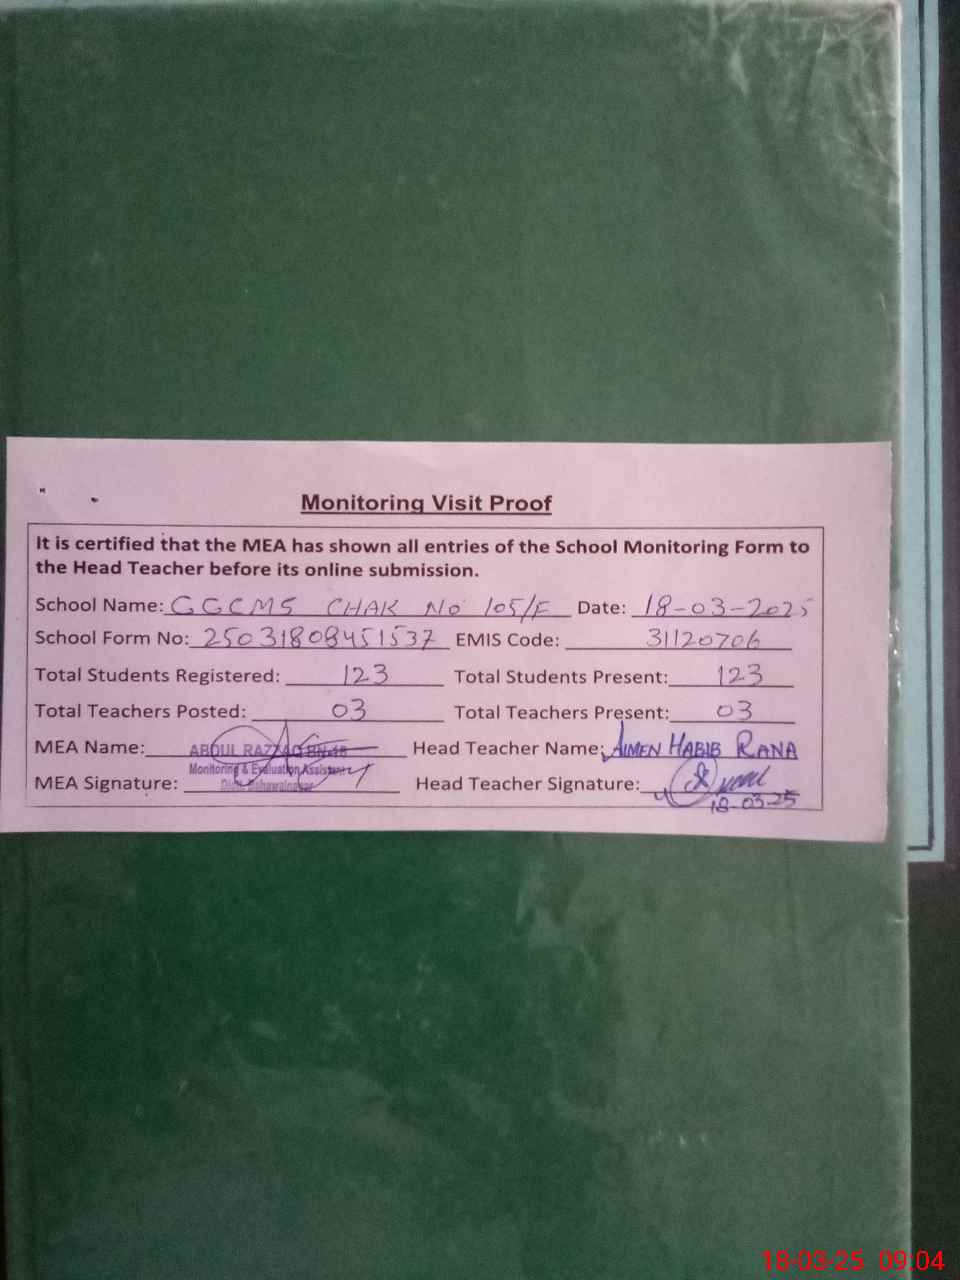 Monitoring Visit Proof
It is certified that the MEA has shown all entries of the School Monitoring Form to
the Head Teacher before its online submission.
School Name: GGCMS CHAK No 105/F Date: 18-03-2025
School Form No: 25031808451537 EMIS Code: 31120706
Total Students Registered: 123 Total Students Present: 123
Total Teachers Posted: 03 Total Teachers Present: 03
MEA Name: ABDUL RAZZAQ Head Teacher Name: AIMEN HABIB RANA
Monitoring & Evaluation Assistant
MEA Signature: Head Teacher Signature:
18-03-25
18-03-25 09:04